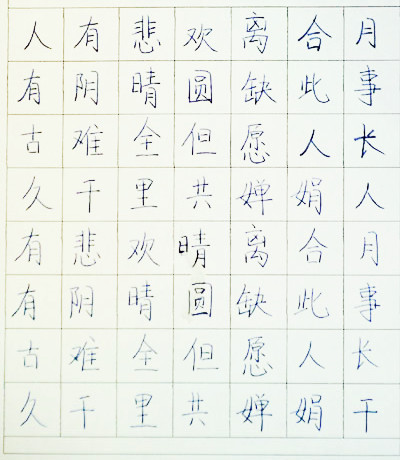 人有悲欢离合月
有阴晴圆缺此事
古难全但愿人长
久千里共婵娟人
有悲欢晴离合月
有阴晴圆缺此事
古难全但愿人长
久千里共婵娟干